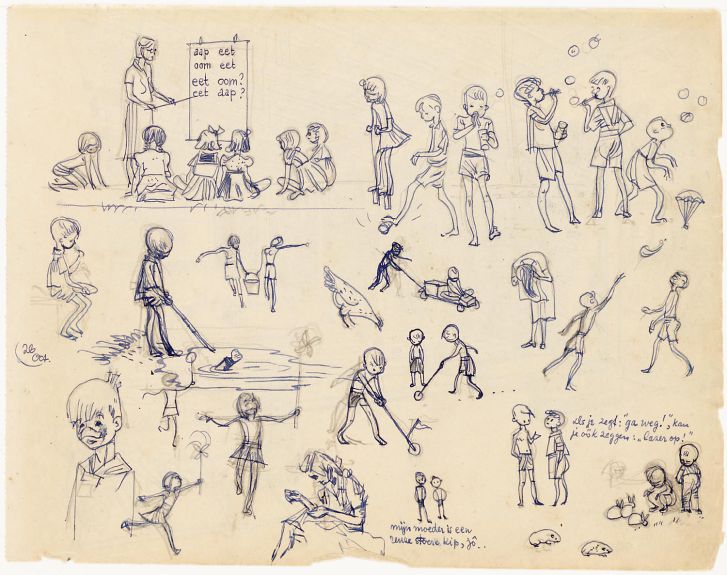 aap eet
oom eet
eet oom?
eet aap?
26
Oct.
als je zegt: "ga weg!", kan
je óók zeggen: "lazer op!"
mijn moeder is een
reuze stoere kip, jô..